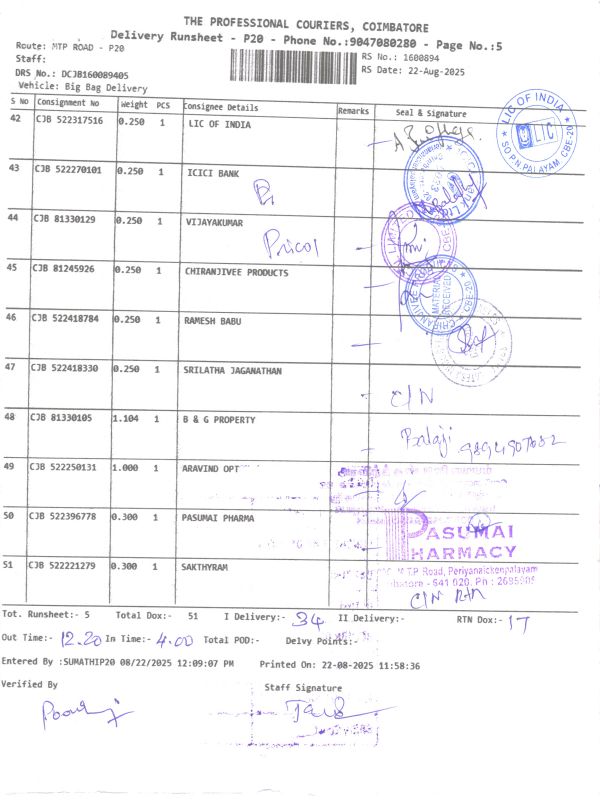 THE PROFESSIONAL COURIERS, COIMBATORE
Delivery Runsheet - P20 - Phone No.:9047080280 - Page No.:5
Route: MTP ROAD - P20
RS No.: 1600894
Staff:
RS Date: 22-Aug-2025
DRS No.: DCJB160089405
Vehicle: Big Bag Delivery
S No Consignment No Weight PCS Consignee Details Remarks Seal & Signature
42 CJB 522317516 0.250 1 LIC OF INDIA
LIC OF INDIA
LIC
SO P.N.PALAYAM, CBE-20
43 CJB 522270101 0.250 1 ICICI BANK
44 CJB 81330129 0.250 1 VIJAYAKUMAR
Pricol
45 CJB 81245926 0.250 1 CHIRANJIVEE PRODUCTS
MATERIAL
RECEIVED
46 CJB 522418784 0.250 1 RAMESH BABU
47 CJB 522418330 0.250 1 SRILATHA JAGANATHAN
C/N
48 CJB 81330105 1.104 1 B & G PROPERTY
Balaji
49 CJB 522250131 1.000 1 ARAVIND OPT
50 CJB 522396778 0.300 1 PASUMAI PHARMA
PASUMAI
PHARMACY
M.T.P Road, Periyanaickenpalayam
641 020. Ph :
51 CJB 522221279 0.300 1 SAKTHYRAM
C/N
Tot. Runsheet:- 5 Total Dox:- 51 I Delivery:- 34 II Delivery:- RTN Dox:- 17
Out Time:- 12.20 In Time:- 4.00 Total POD:- Delvy Points:-
Entered By :SUMATHIP20 08/22/2025 12:09:07 PM Printed On: 22-08-2025 11:58:36
Verified By Staff Signature